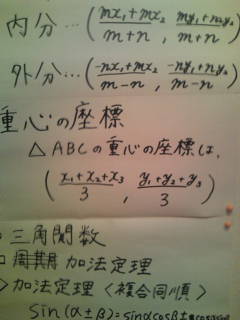 内分…(mx₁+mx₂/m+n, my₁+ny₂/m+n)
外分…(-nx₁+mx₂/m-n, -ny₁+ny₂/m-n)
重心の座標
△ABCの重心の座標は、
(x₁+x₂+x₃/3, y₁+y₂+y₃/3)
三角関数
周期 加法定理
加法定理〈複合同順〉
sin(α±β)=sinαcosβ±